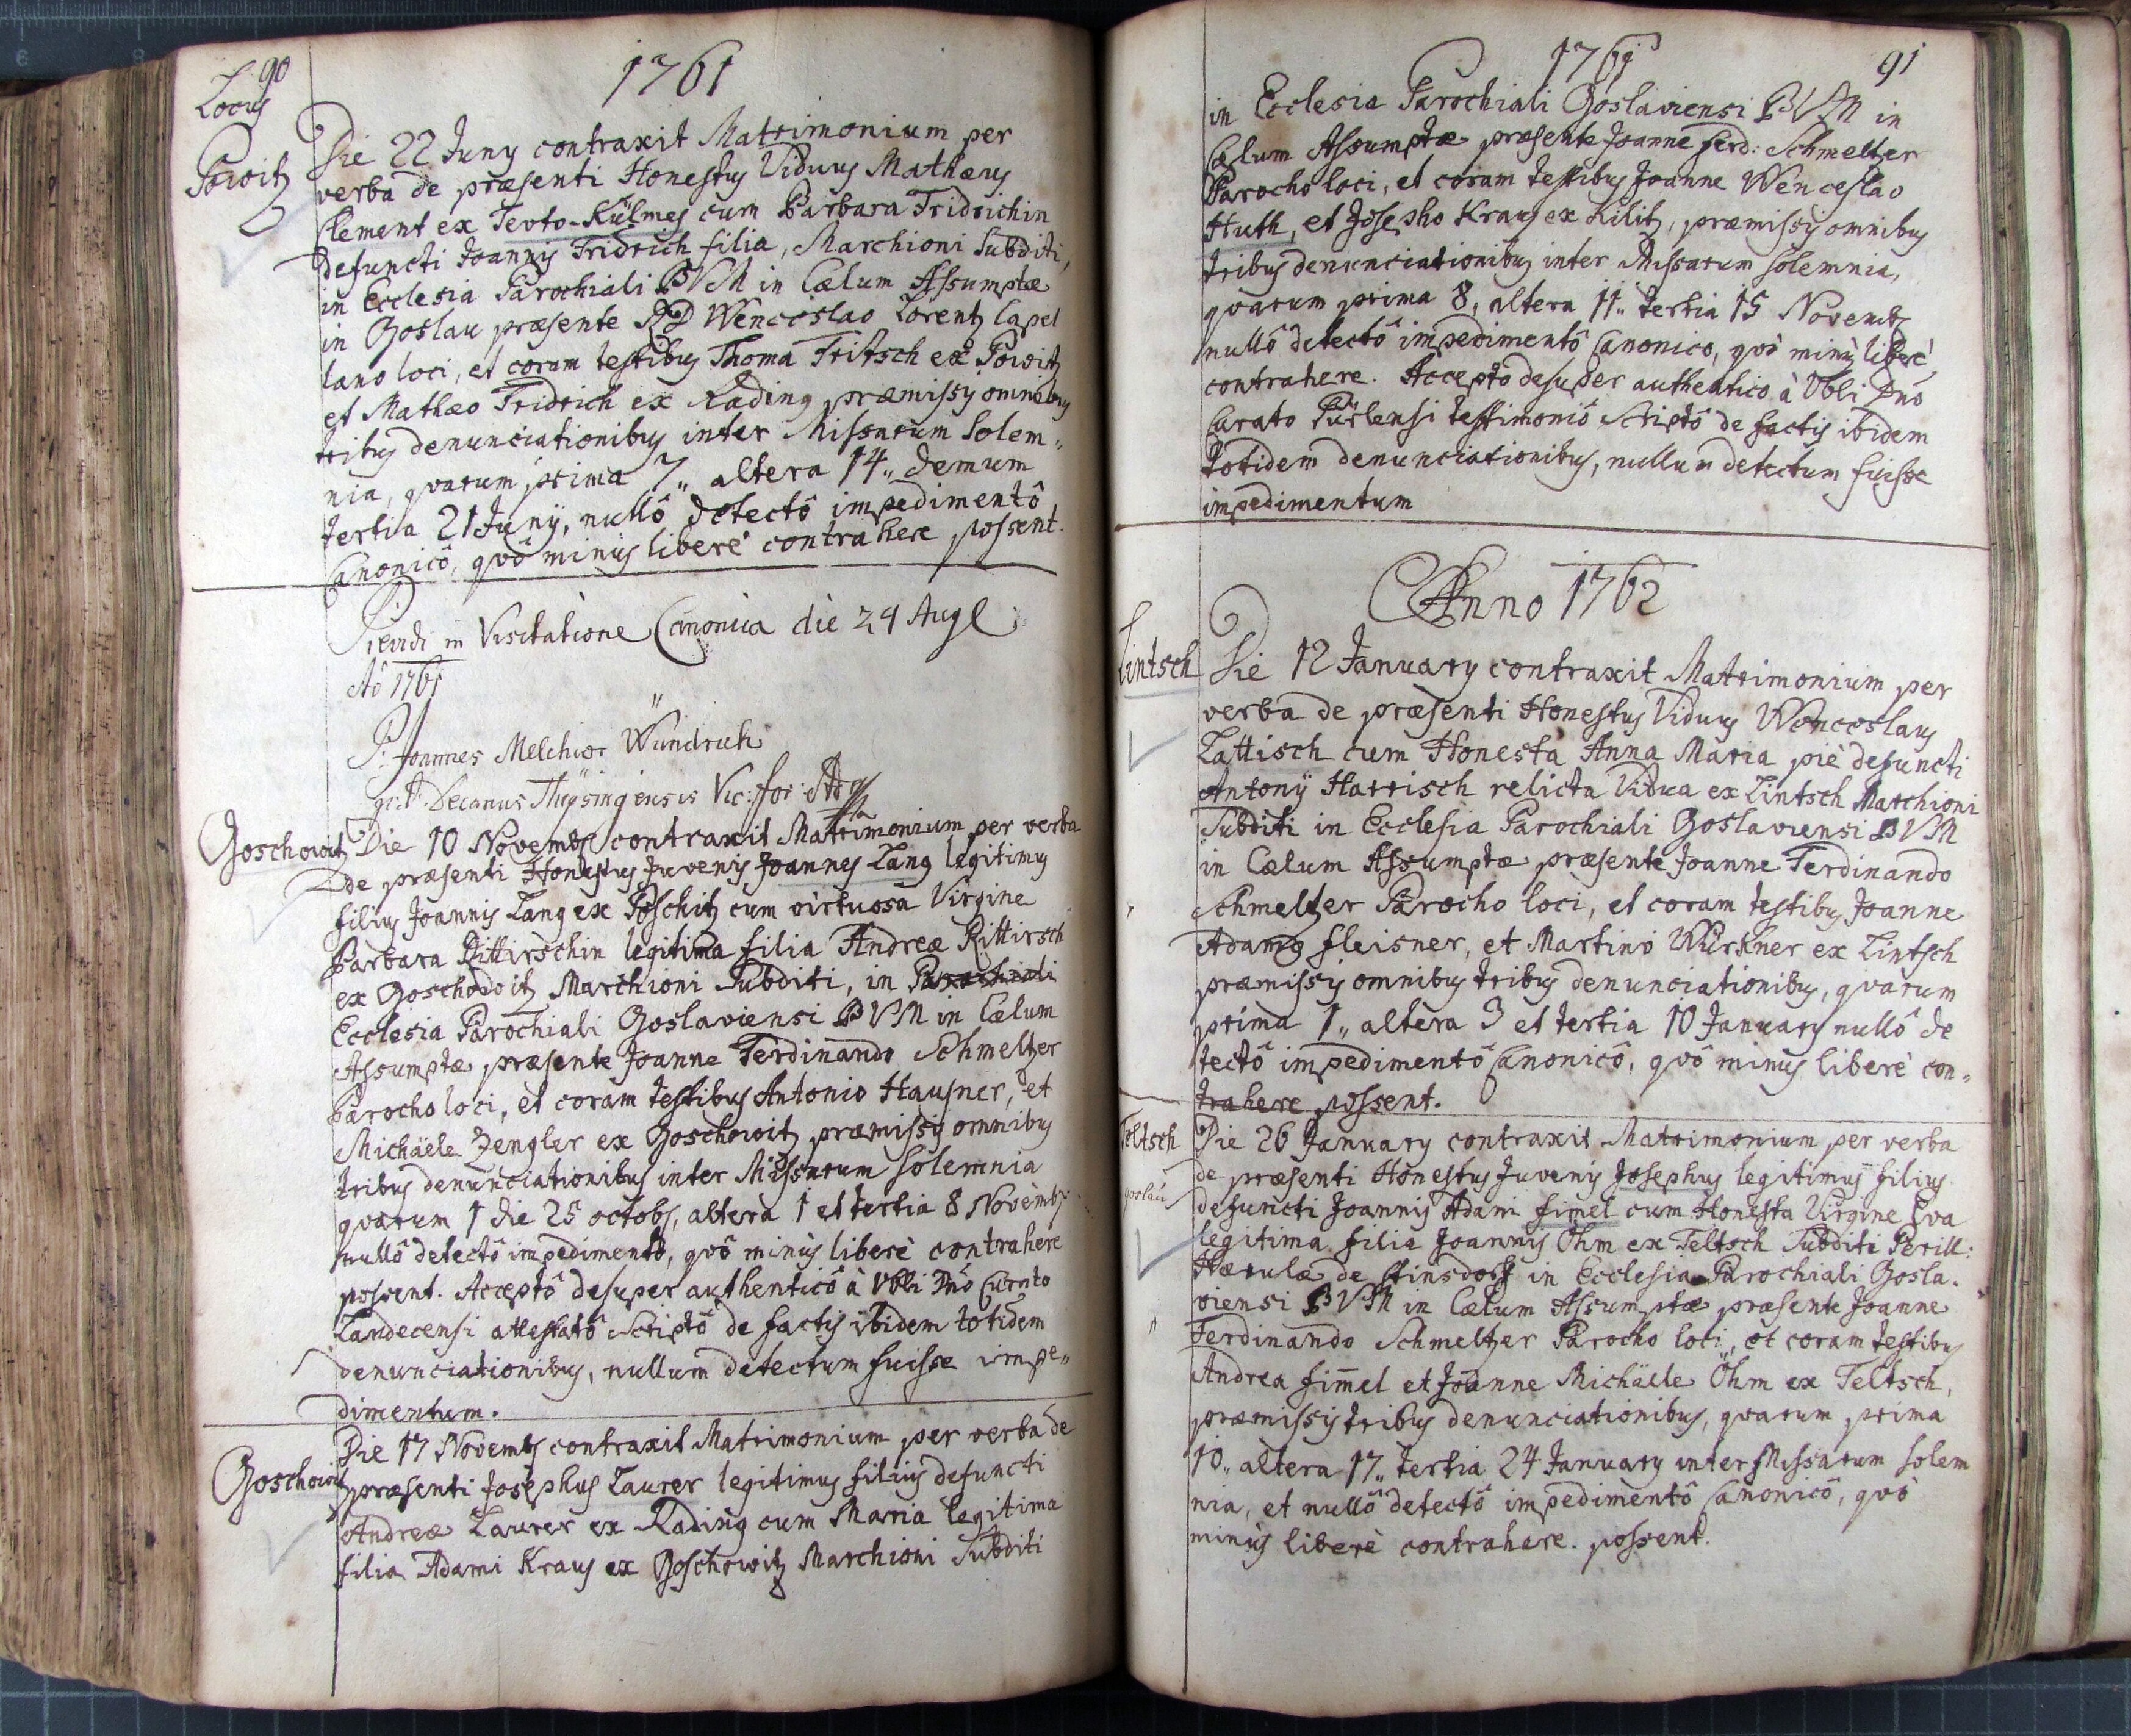 90
1761
Locus
Powitz
Die 22 Juny contraxit Matrimonium per
verba de præsenti Honestus Viduus Mathæus
Clement ex Teuto-Külmes cum Barbara Fridrichin
defuncti Joannis Fridrich filia, Marchioni Subditi,
in Ecclesia Parochiali BVM in Cælum Assumptæ
in Goslau præsente RD Wenceslao Lorentz Capel
lano loci, et coram testibus Thoma Fritsch ex Powitz
et Mathæo Fridrich ex Rading præmissis omnibus
tribus denunciationibus inter Missarum Solem„
nia, qvarum prima 7„ altera 14„ demum
tertia 21 Junij, nullô detectô impedimentô
Canonicô, qvô minùs liberè contrahere possent.
in Visitatione Canonica die 24 Aug
Aô 1761
P. Joannes Melchior Wündrich
Decanus
Goschowitz
Die 10 Novembr contraxit Matrimonium per verba
de præsenti Honestus Juvenis Joannes Lang legitimus
filius Joannis Lang ex Poschitz cum virtuosâ Virgine
Barbara Rittirschin legitima filia Andreæ Rittirsch
ex Goschowitz Marchioni Subditi, in Parochiali
Ecclesia Parochiali Goslaviensi BVM in Cælum
Assumptæ præsente Joanne Ferdinando Schmeltzer
Parocho loci, et coram testibus Antonio Hausner, et
Michäele Zengler ex Goschowitz præmissis omnibus
tribus denunciationibus inter Missarum solemnia
qvarum 1 die 25 octobr, altera 1 et tertia 8 Novembr
nullô detectô impedimentô, qvô minùs liberè contrahere
possent. Acceptô desuper authenticô à Vbli Dnô Curato
Landecensi attestatô Scriptô de factis ibidem totidem
denunciationibus, nullum detectum fuisse impe„
dimentum.
Goschowitz
Die 17 Novembr contraxit Matrimonium per verba de
præsenti Josephus Laurer legitimus filius defuncti
Andreæ Laurer ex Rading cum Maria legitima
filia Adami Kraus ex Goschowitz Marchioni Subditi
1761
91
in Ecclesia Parochiali Goslaviensi BVM in
Cælum Assumptæ præsente Joanne Ferd: Schmeltzer
Parocho loci, et coram testibus Joanne Wenceslao
Huth, et Josepho Kraus ex Kilitz, præmissis omnibus
tribus denunciationibus inter Missarum solemnia,
qvarum prima 8, altera 11„ tertia 15 Novembr
nullô detectô impedimentô Canonico, qvô minùs liberè
contrahere. Acceptô desuper authentico à Vbli Dnô
Curato Pürlensi testimoniô Scriptô de factis ibidem
totidem denunciationibus, nullum detectum fuisse
impedimentum
Anno 1762
Lintsch
Die 12 January contraxit Matrimonium per
verba de præsenti Honestus Viduus Wenceslaus
Lattisch cum Honestâ Anna Maria piè defuncti
Antonÿ Harrisch relicta Vidua ex Lintsch Marchioni
Subditi in Ecclesia Parochiali Goslaviensi BVM
in Cælum Assumptæ præsente Joanne Ferdinando
Schmeltzer Parocho loci, et coram testibus Joanne
Adamo fleisner, et Martino Würkner ex Lintsch
præmissis omnibus tribus denunciationibus, qvarum
prima 1„ altera 3 et tertia 10 January nullô de
tectô impedimentô Canonicô, qvô minùs liberè con„
trahere possent.
Teltsch
goslau
Die 26 January contraxit Matrimonium per verba
de præsenti Honestus Juvenis Josephus legitimus filius
defuncti Joannis Adami fimel cum Honesta Virgine Eva
legitima filia Joannis Öhm ex Teltsch Subditi Perill:
de Stinsdorf in Ecclesia Parochiali Gosla„
viensi BVM in Cælum Assumptæ præsente Joanne
Ferdinando Schmeltzer Parocho loci, et coram testibus
Andrea fimel et Joanne Michäele Öhm ex Teltsch,
præmissis tribus denunciationibus, qvarum prima
10„ altera 17„ tertia 24 January inter Missarum solem
nia, et nullô detectô impedimentô Canonicô, qvô
minùs liberè contrahere. possent.